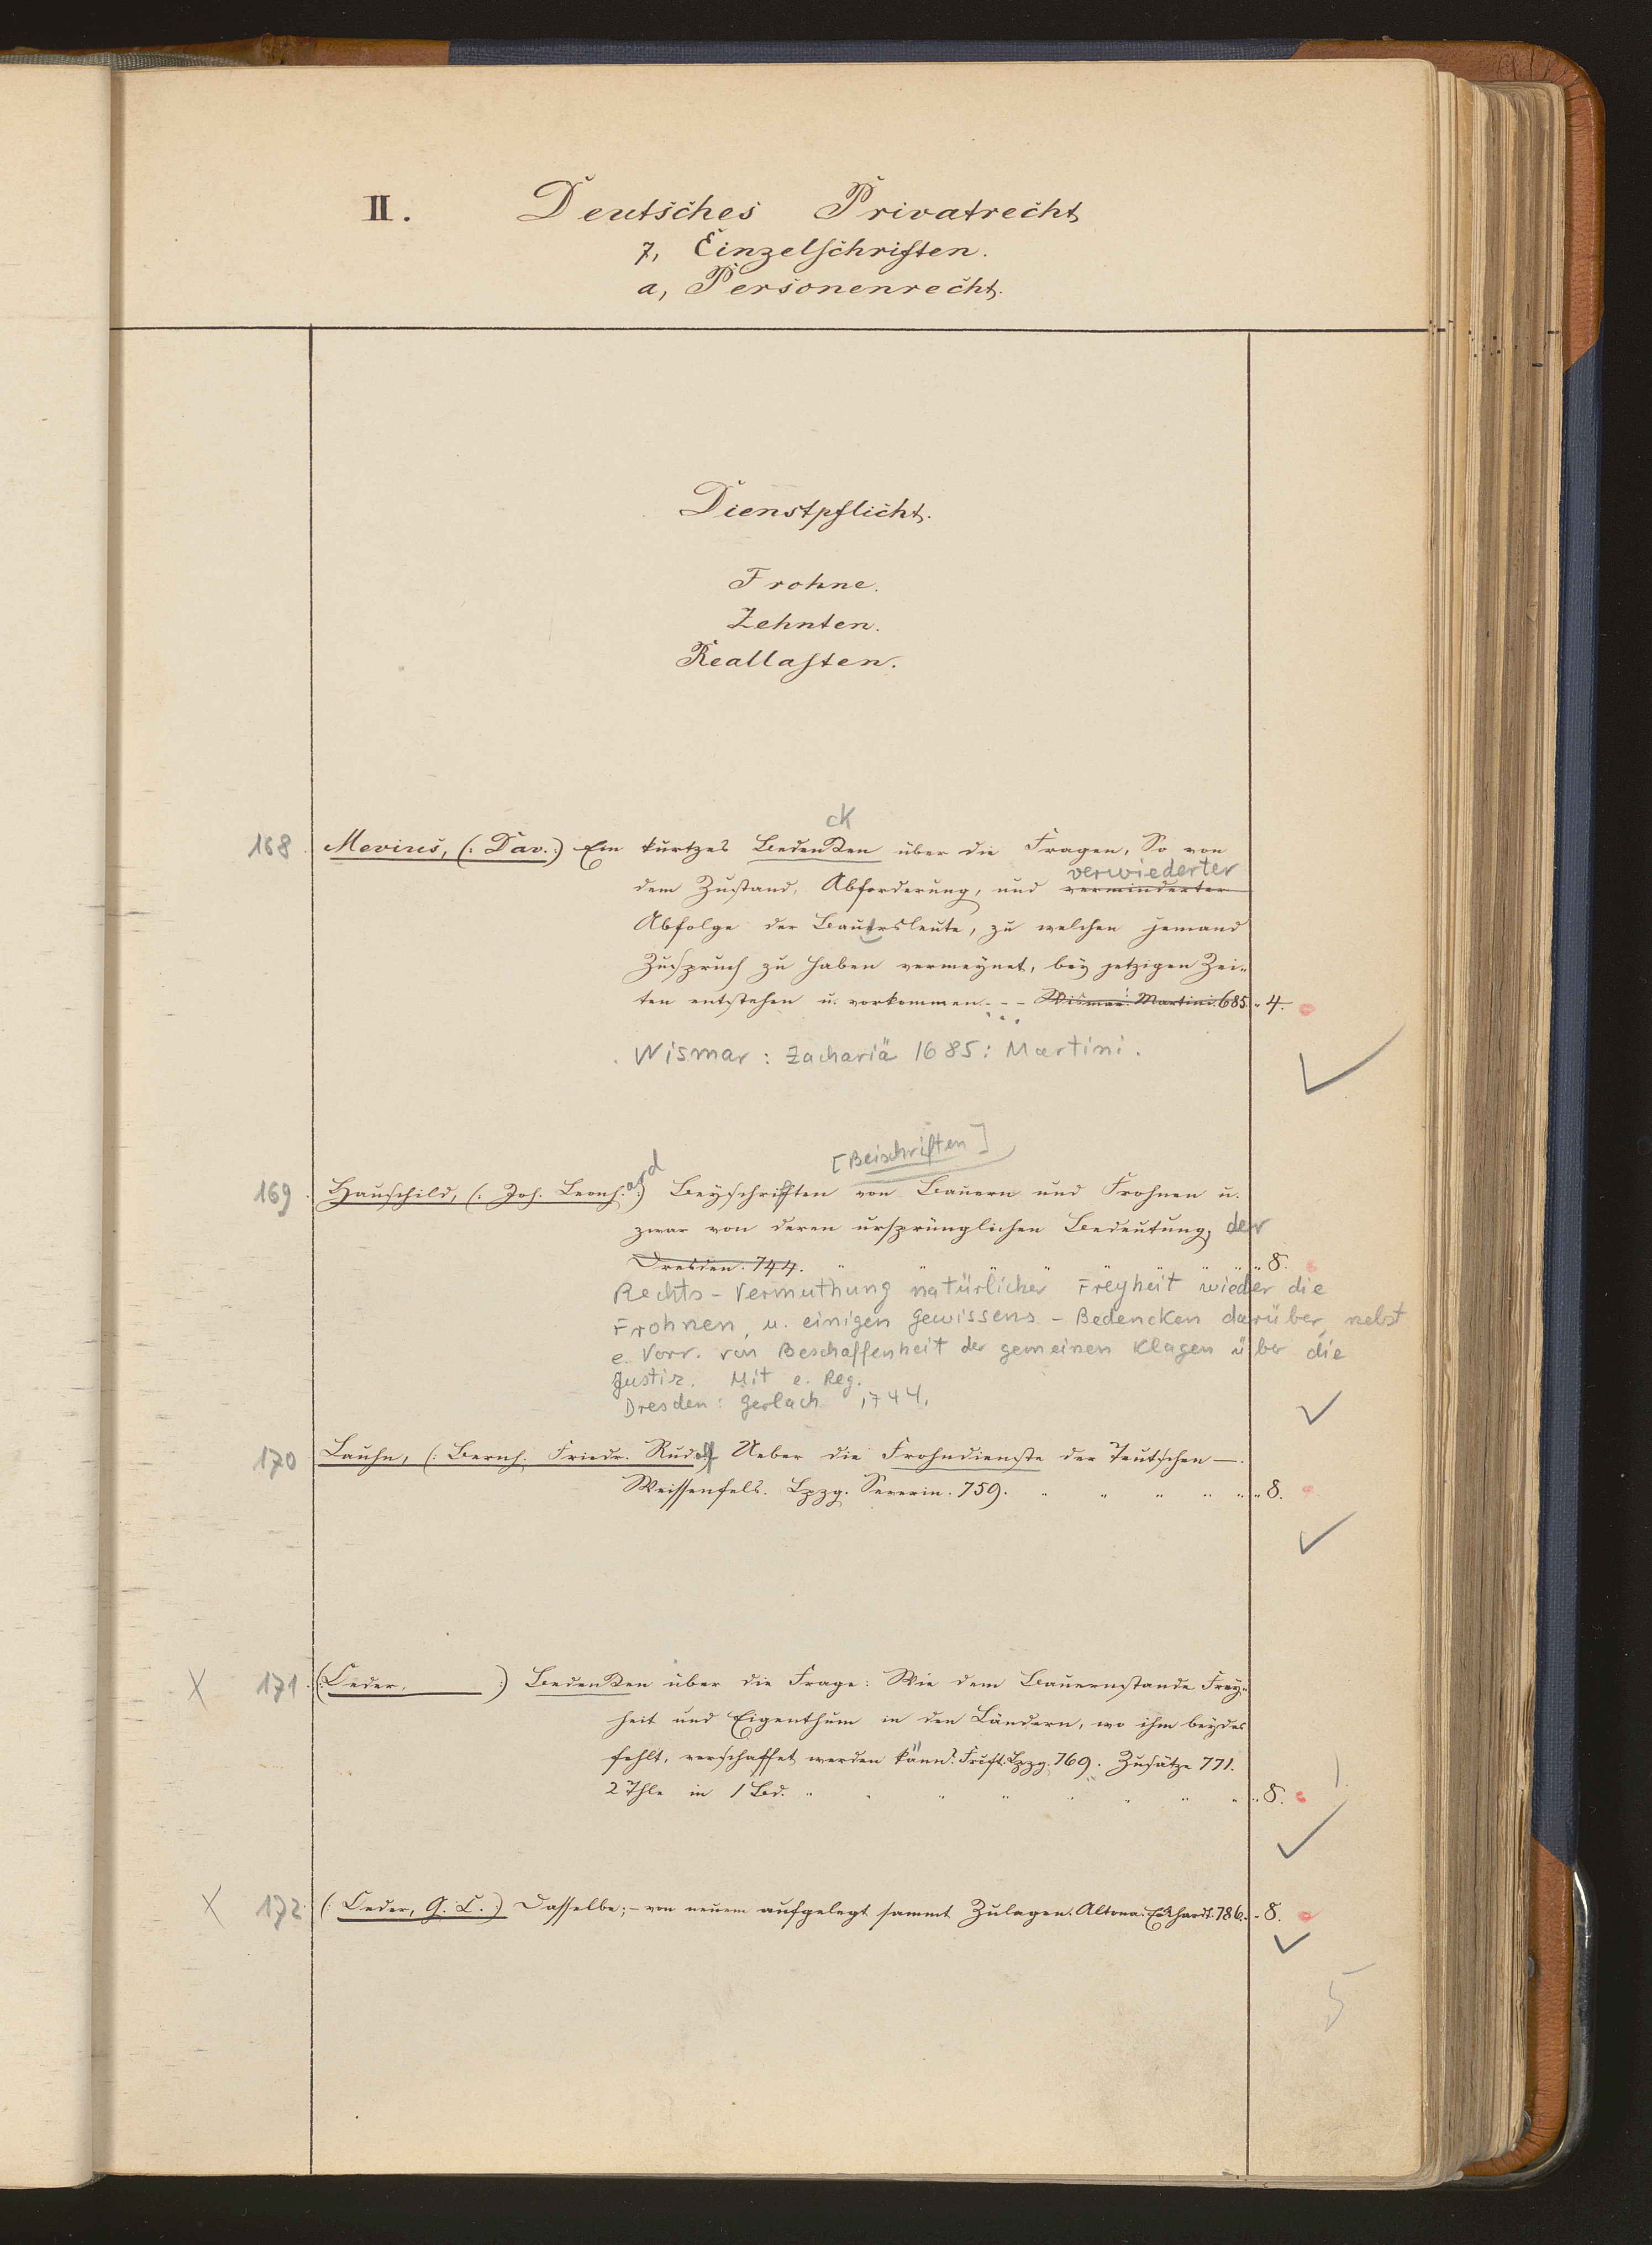 II. Deutsches Privatrecht
7, Einzelschriften.
a, Personenrecht.
Dienstpflicht.
Frohne.
Zehnten.
Reallasten.
ck
168 Mevius, (: Dav. :) Ein kurtzes Bedenken über die Fragen, So von
verwiederter
dem Zustand, Abforderung, und verminderter
Abfolge der Bauersleute, zu welchen jemand
Zuspruch zu haben vermeynet, bey jetzigen Zei-
ten entstehen u. vorkommen. - - Wismar. Martini. 685. " 4.
Wismar : Zachariä 1685 : Martini.
[Beischriften]
169 Hauschild, (: Joh. Leonhard :) Beyschriften von Bauern und Frohnen u.
zwar von deren ursprünglichen Bedeutung, der
Dresden. 744. " " " " " " " 8.
Rechts-Vermuthung natürlicher Freyheit wieder die
Frohnen, u. einigen Gewissens-Bedencken darüber, nebst
e. Vorr. von Beschaffenheit der gemeinen Klagen über die
Justiz. Mit e. Reg.
Dresden : Gerlach 1744.
170 Lauhn, (: Bernh. Friedr. Rudolf Ueber die Frohndienste der Teutschen —.
Weissenfels. Lpzg. Severin. 759. " " " " " " 8.
X 171 (: Oeder. :) Bedenken über die Frage: Wie dem Bauernstande Frey-
heit und Eigenthum in den Ländern, wo ihm beydes
fehlt, verschaffet werden könn? Frcft. Lpzg. 769. Zusätze 771.
2 Thle in 1 Bd. " " " " " " " " 8.
X 172 (: Oeder, G. C. :) Dasselbe; - von neuem aufgelegt sammt Zulagen. Altona. Eckhardt. 786. - 8.
5